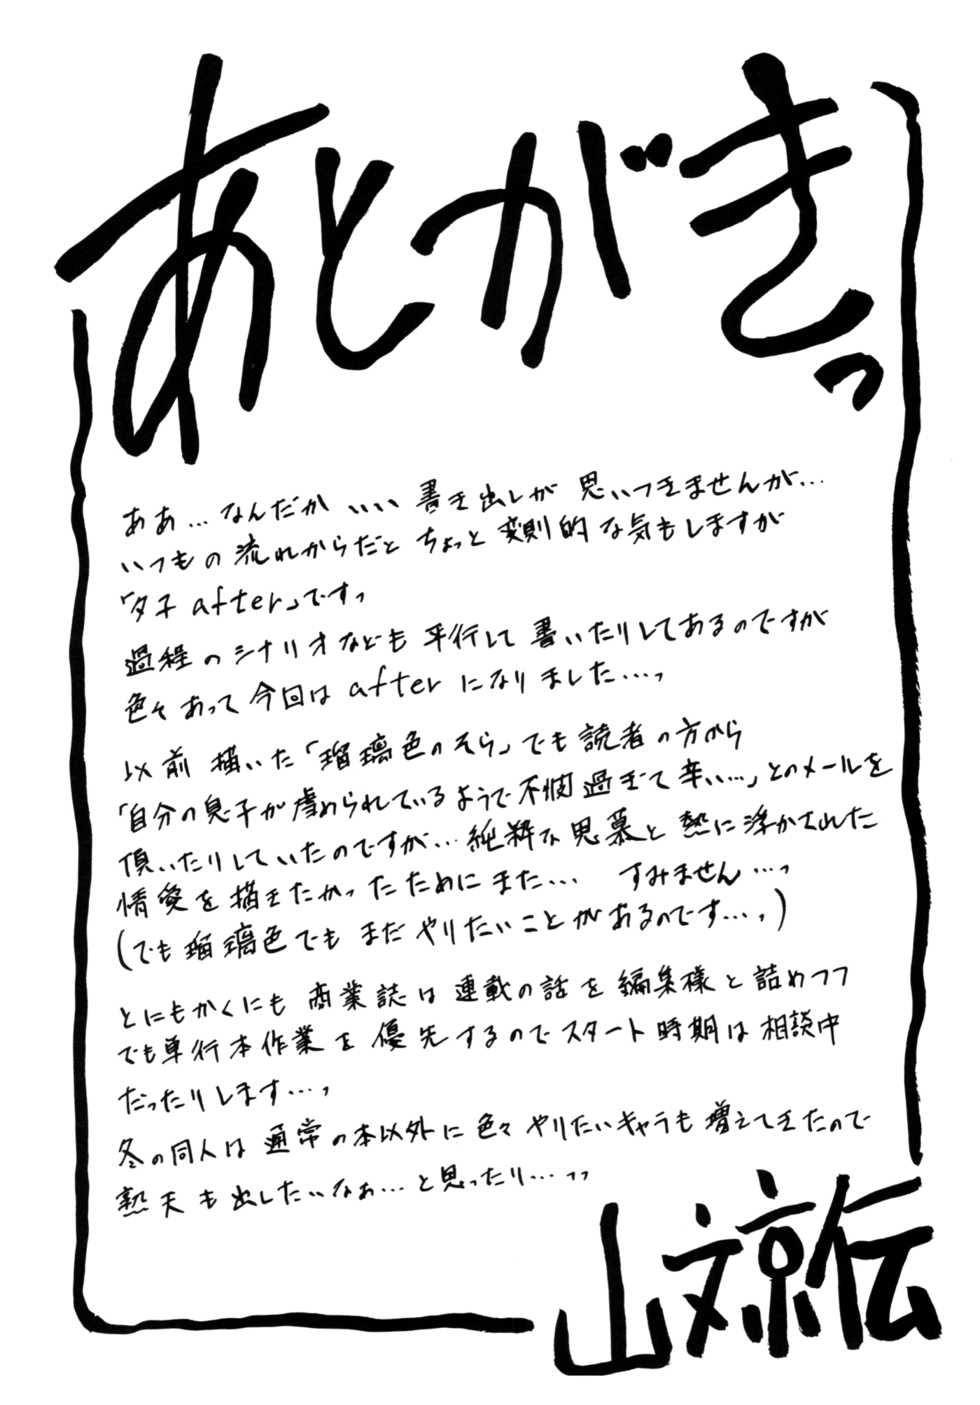 あとがきっ
ああ…なんだかいい書き出しが思いつきませんが…
いつもの流れからだとちょっと変則的な気もしますが
「夕子after」ですっ
過程のシナリオなども平行して書いたりしてあるのですが
色々あって今回はafterになりました…っ
以前描いた「瑠璃色のそら」でも読者の方から
「自分の息子が虐められているようで不憫過ぎて辛い…」とのメールを
頂いたりしていたのですが…純粋な思慕と熱に浮かされた
情愛を描きたかったためにまた… すみません…っ
(でも瑠璃色でもまだやりたいことがあるのです…っ)
とにもかくにも商業誌は連載の話を編集様と詰めつつ
でも単行本作業を優先するのでスタート時期は相談中
だったりします…っ
冬の同人は通常の本以外に色々やりたいキャラも増えてきたので
熱天も出したいなぁ…と思ったり…っっ
山文京伝